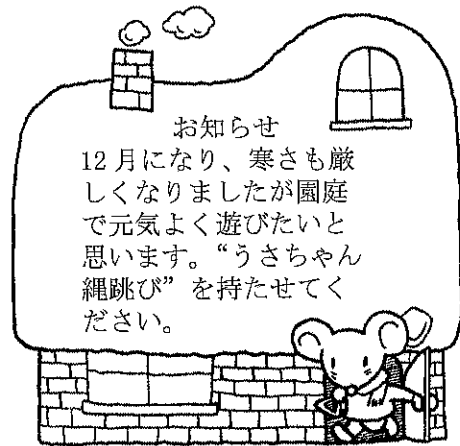 お知らせ
12月になり、寒さも厳
しくなりましたが園庭
で元気よく遊びたいと
思います。“うさちゃん
縄跳び”を持たせてく
ださい。